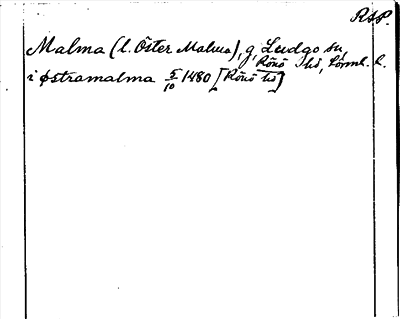 RAP.
Malma (l. Öster Malma), g, Ludgo sn,
Rönö hd, Södml. l.
i Østramalma 5/10 1480 [Rönö hd]